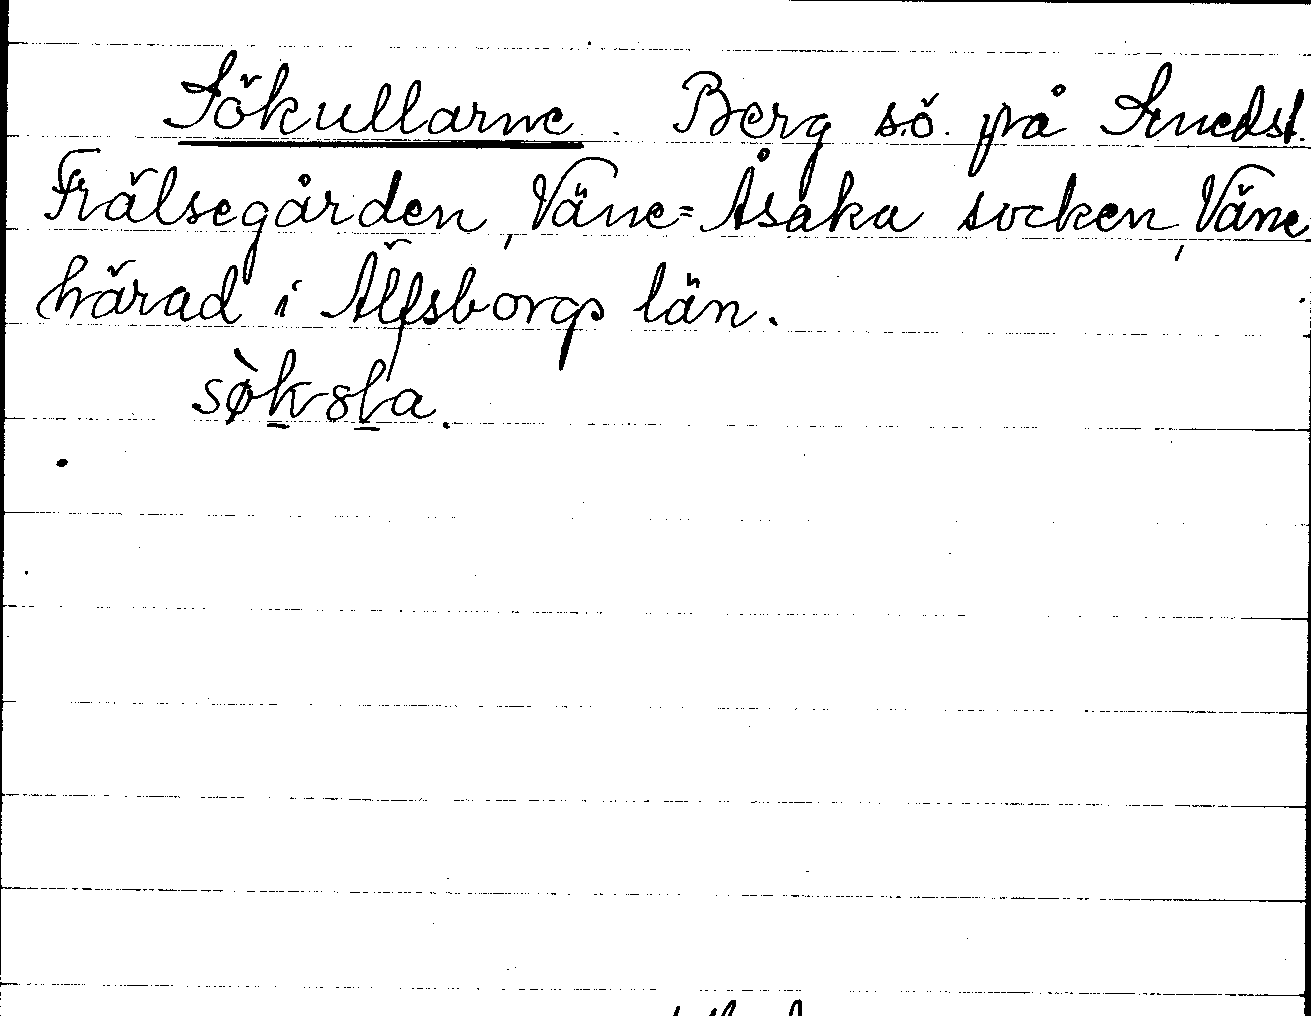 Sökullarne. Berg s.ö. på Smedst.
Frälsegården, Väne=Åsaka socken, Väne
härad i Älfsborgs län.
sø̀ksla.